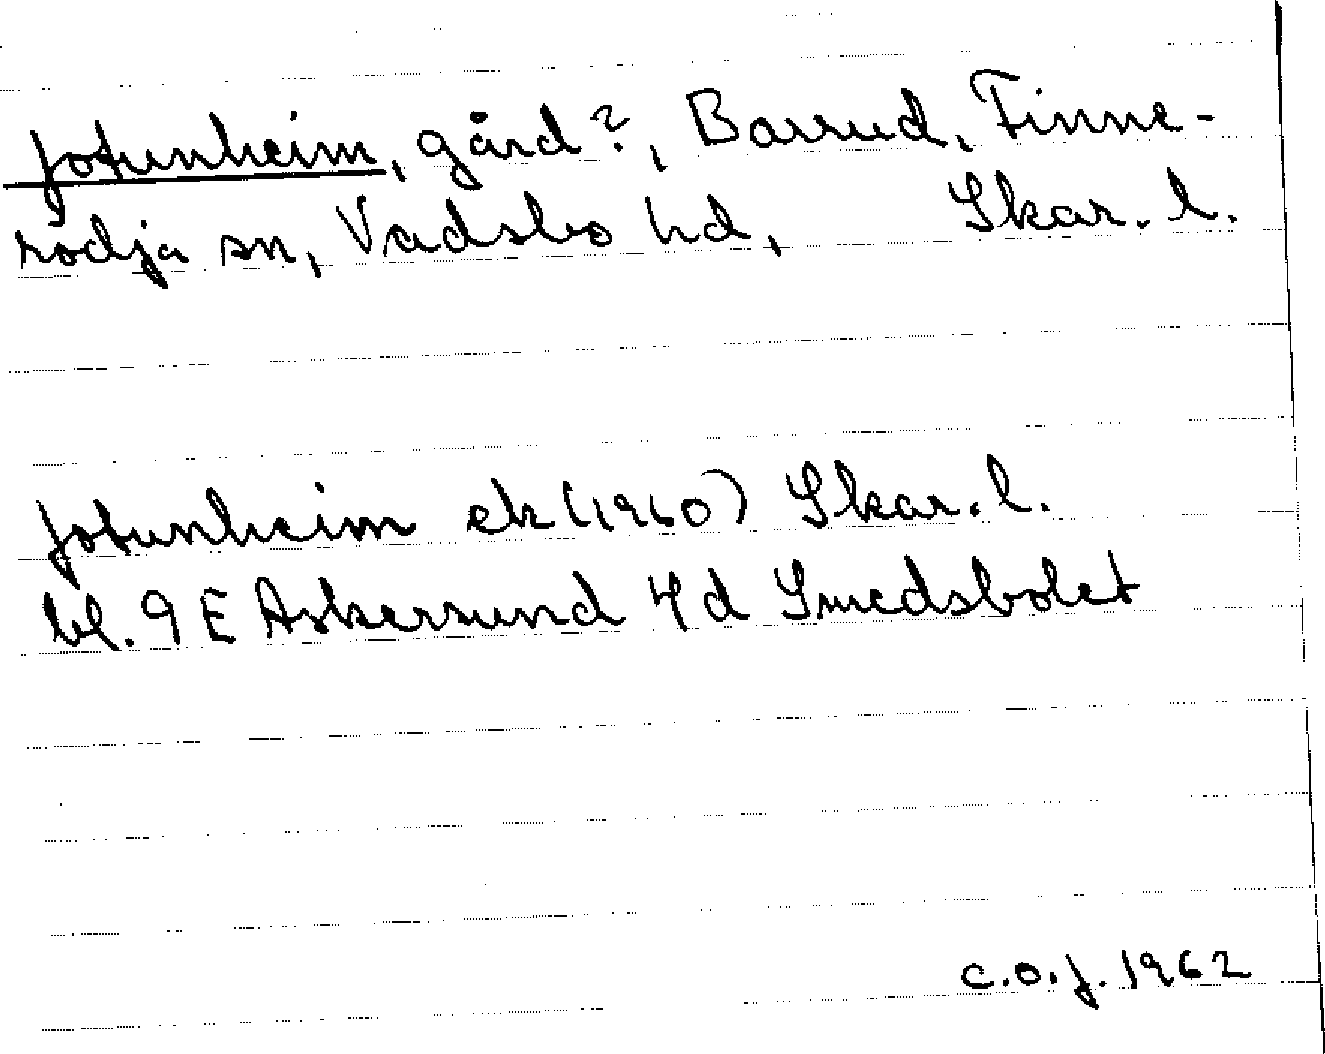 Jotunheim, gård?, Barrud, Finne-
rödja sn, Vadsbo hd, Skar. l.
Jotunheim ek (1960) Skar. l.
bl. 9 E Askersund 4d Smedsbolet
C.O.J. 1962